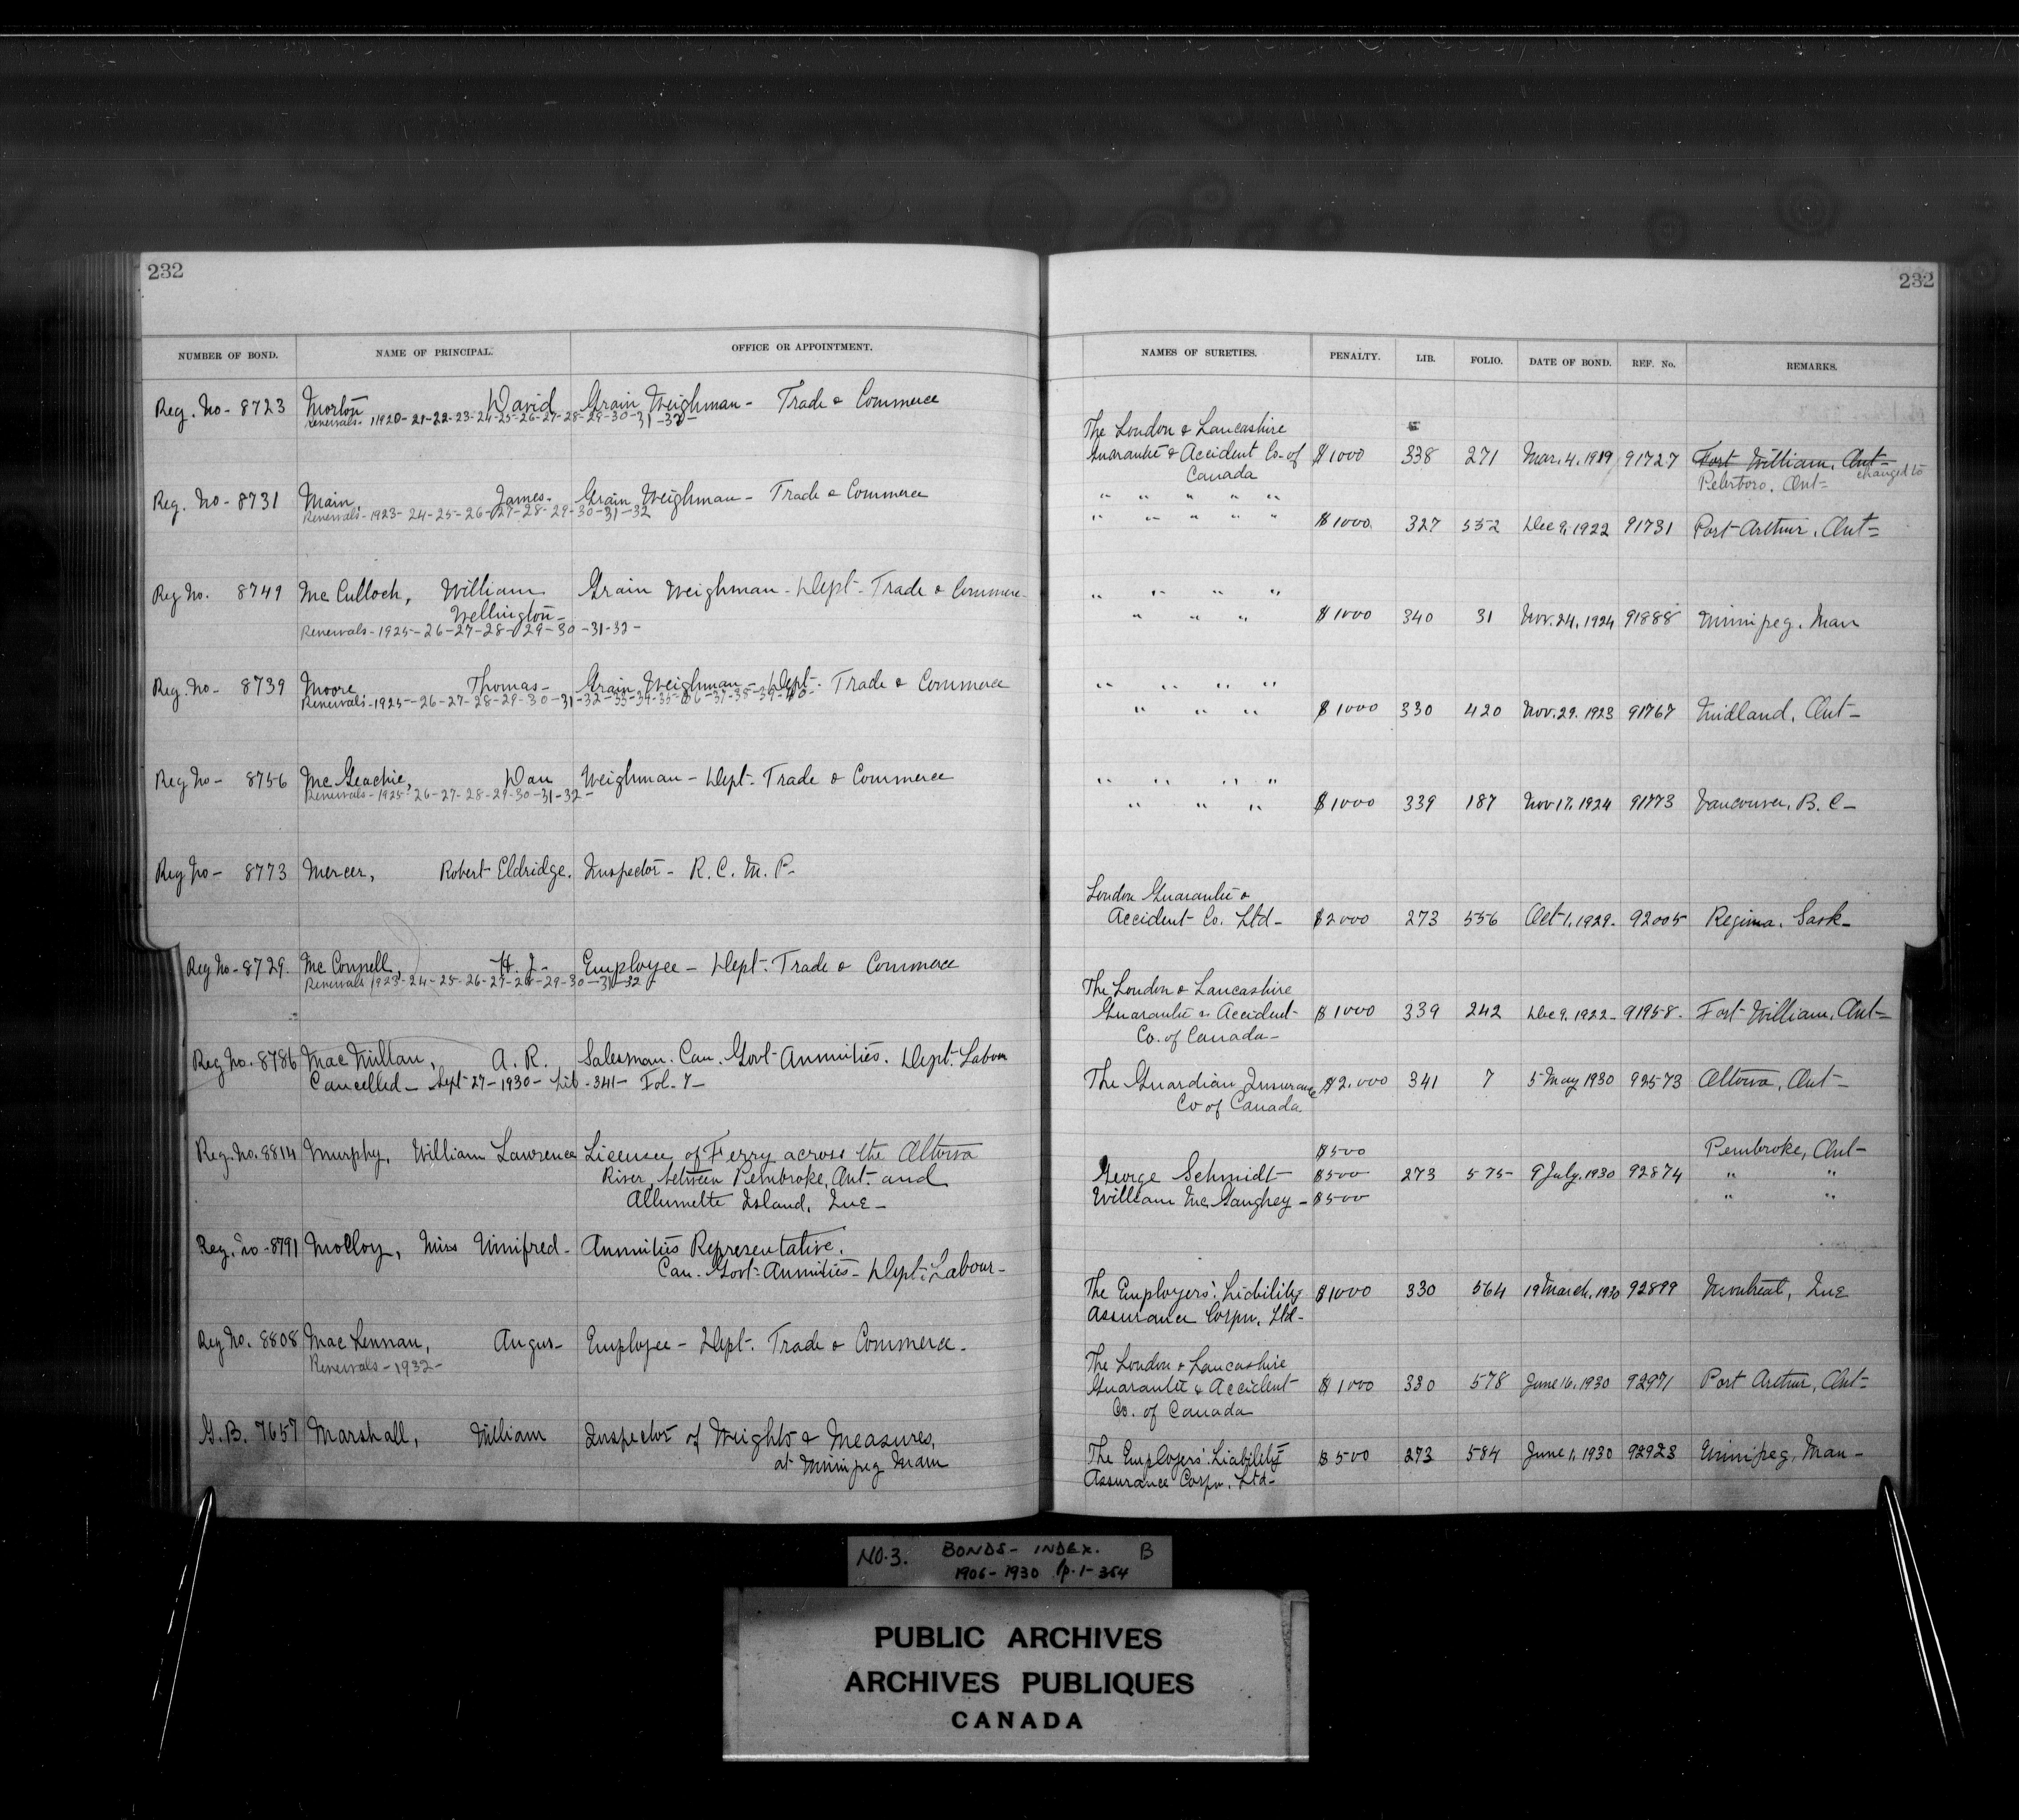 232
NUMBER OF BOND. NAME OF PRINCIPAL. OFFICE OR APPOINTMENT.
Reg. No - 8723 Morton, David Grain Weighman - Trade & Commerce
Renewals - 1920-21-22-23-24-25-26-27-28-29-30-31-32-
Reg. No - 8731 Main, James- Grain Weighman - Trade & Commerce
Renewals - 1923-24-25-26-27-28-29-30-31-32
Reg No. 8749 McCulloch, William Grain Weighman - Dept - Trade & Commerce-
Wellington-
Renewals - 1925-26-27-28-29-30-31-32-
Reg. No - 8739 Moore, Thomas- Grain Weighman - Dept. Trade & Commerce
Renewals - 1925-26-27-28-29-30-31-32-33-34-35-36-37-38-39-40-
Reg No - 8756 McGeachie, Dan Weighman - Dept. Trade & Commerce
Renewals - 1925-26-27-28-29-30-31-32-
Reg No - 8773 Mercer, Robert Eldridge. Inspector - R. C. M. P-
Reg No - 8729. McConnell, H. J- Employee - Dept. Trade & Commerce
Renewals 1923-24-25-26-27-28-29-30-31-32
Reg No. 8786 MacMillan, A. R. Salesman. Can. Govt Annuities. Dept. Labour
Cancelled - Sept 27-1930 - Lib - 341 - Fol. 7 -
Reg. No. 8814 Murphy, William Lawrence Licensee of Ferry across the Ottawa
River, between Pembroke, Ont. and
Allumette Island, Que -
Reg. No - 8791 Molloy, Miss Winifred- Annuities Representative.
Can. Govt. Annuities - Dept. Labour -
Reg No. 8808 MacLennan, Angus- Employee - Dept. Trade & Commerce.
Renewals - 1932 -
G. B. 7657 Marshall, William Inspector of Weights & Measures,
at Winnipeg Man
232
NAMES OF SURETIES. PENALTY. LIB. FOLIO. DATE OF BOND. REF. No. REMARKS.
The London & Lancashire
Guarantee & Accident Co. of $1000 338 271 Mar. 4. 1919 91727 Fort William, Ont-
Canada changed to
Peterboro. Ont-
" " " " "
" " " " " $1000. 327 552 Dec 9, 1922 91731 Port Arthur, Ont-
" " " "
" " " $1000 340 31 Nov. 24, 1924 91888 Winnipeg. Man
" " " "
" " " $1000 330 420 Nov. 29. 1923 91767 Midland, Ont-
" " " "
" " " $1000 339 187 Nov 17, 1924 91773 Vancouver, B. C-
London Guarantee &
Accident Co. Ltd- $2000 273 556 Oct 1, 1929- 92005 Regina, Sask-
The London & Lancashire
Guarantee & Accident- $1000 339 242 Dec 9. 1922- 91958- Fort William, Ont-
Co. of Canada-
The Guardian Insurance $2,000 341 7 5 May 1930 92573 Ottawa, Ont-
Co of Canada
$500 Pembroke, Ont-
George Schmidt $500 273 575- 9 July, 1930 92874 " "
William McGaughey - $500 " "
The Employers' Liability $1000 330 564 19 March, 1930 92899 Montreal, Que
Assurance Corpn. Ltd-
The London & Lancashire
Guarantee & Accident $1000 330 578 June 16, 1930 92971 Port Arthur, Ont-
Co. of Canada
The Employers' Liability $500 273 584 June 1, 1930 92923 Winnipeg, Man-
Assurance Corpn. Ltd-
NO. 3. BONDS - INDEX. B
1906 - 1930 p. 1 - 364
PUBLIC ARCHIVES
ARCHIVES PUBLIQUES
CANADA